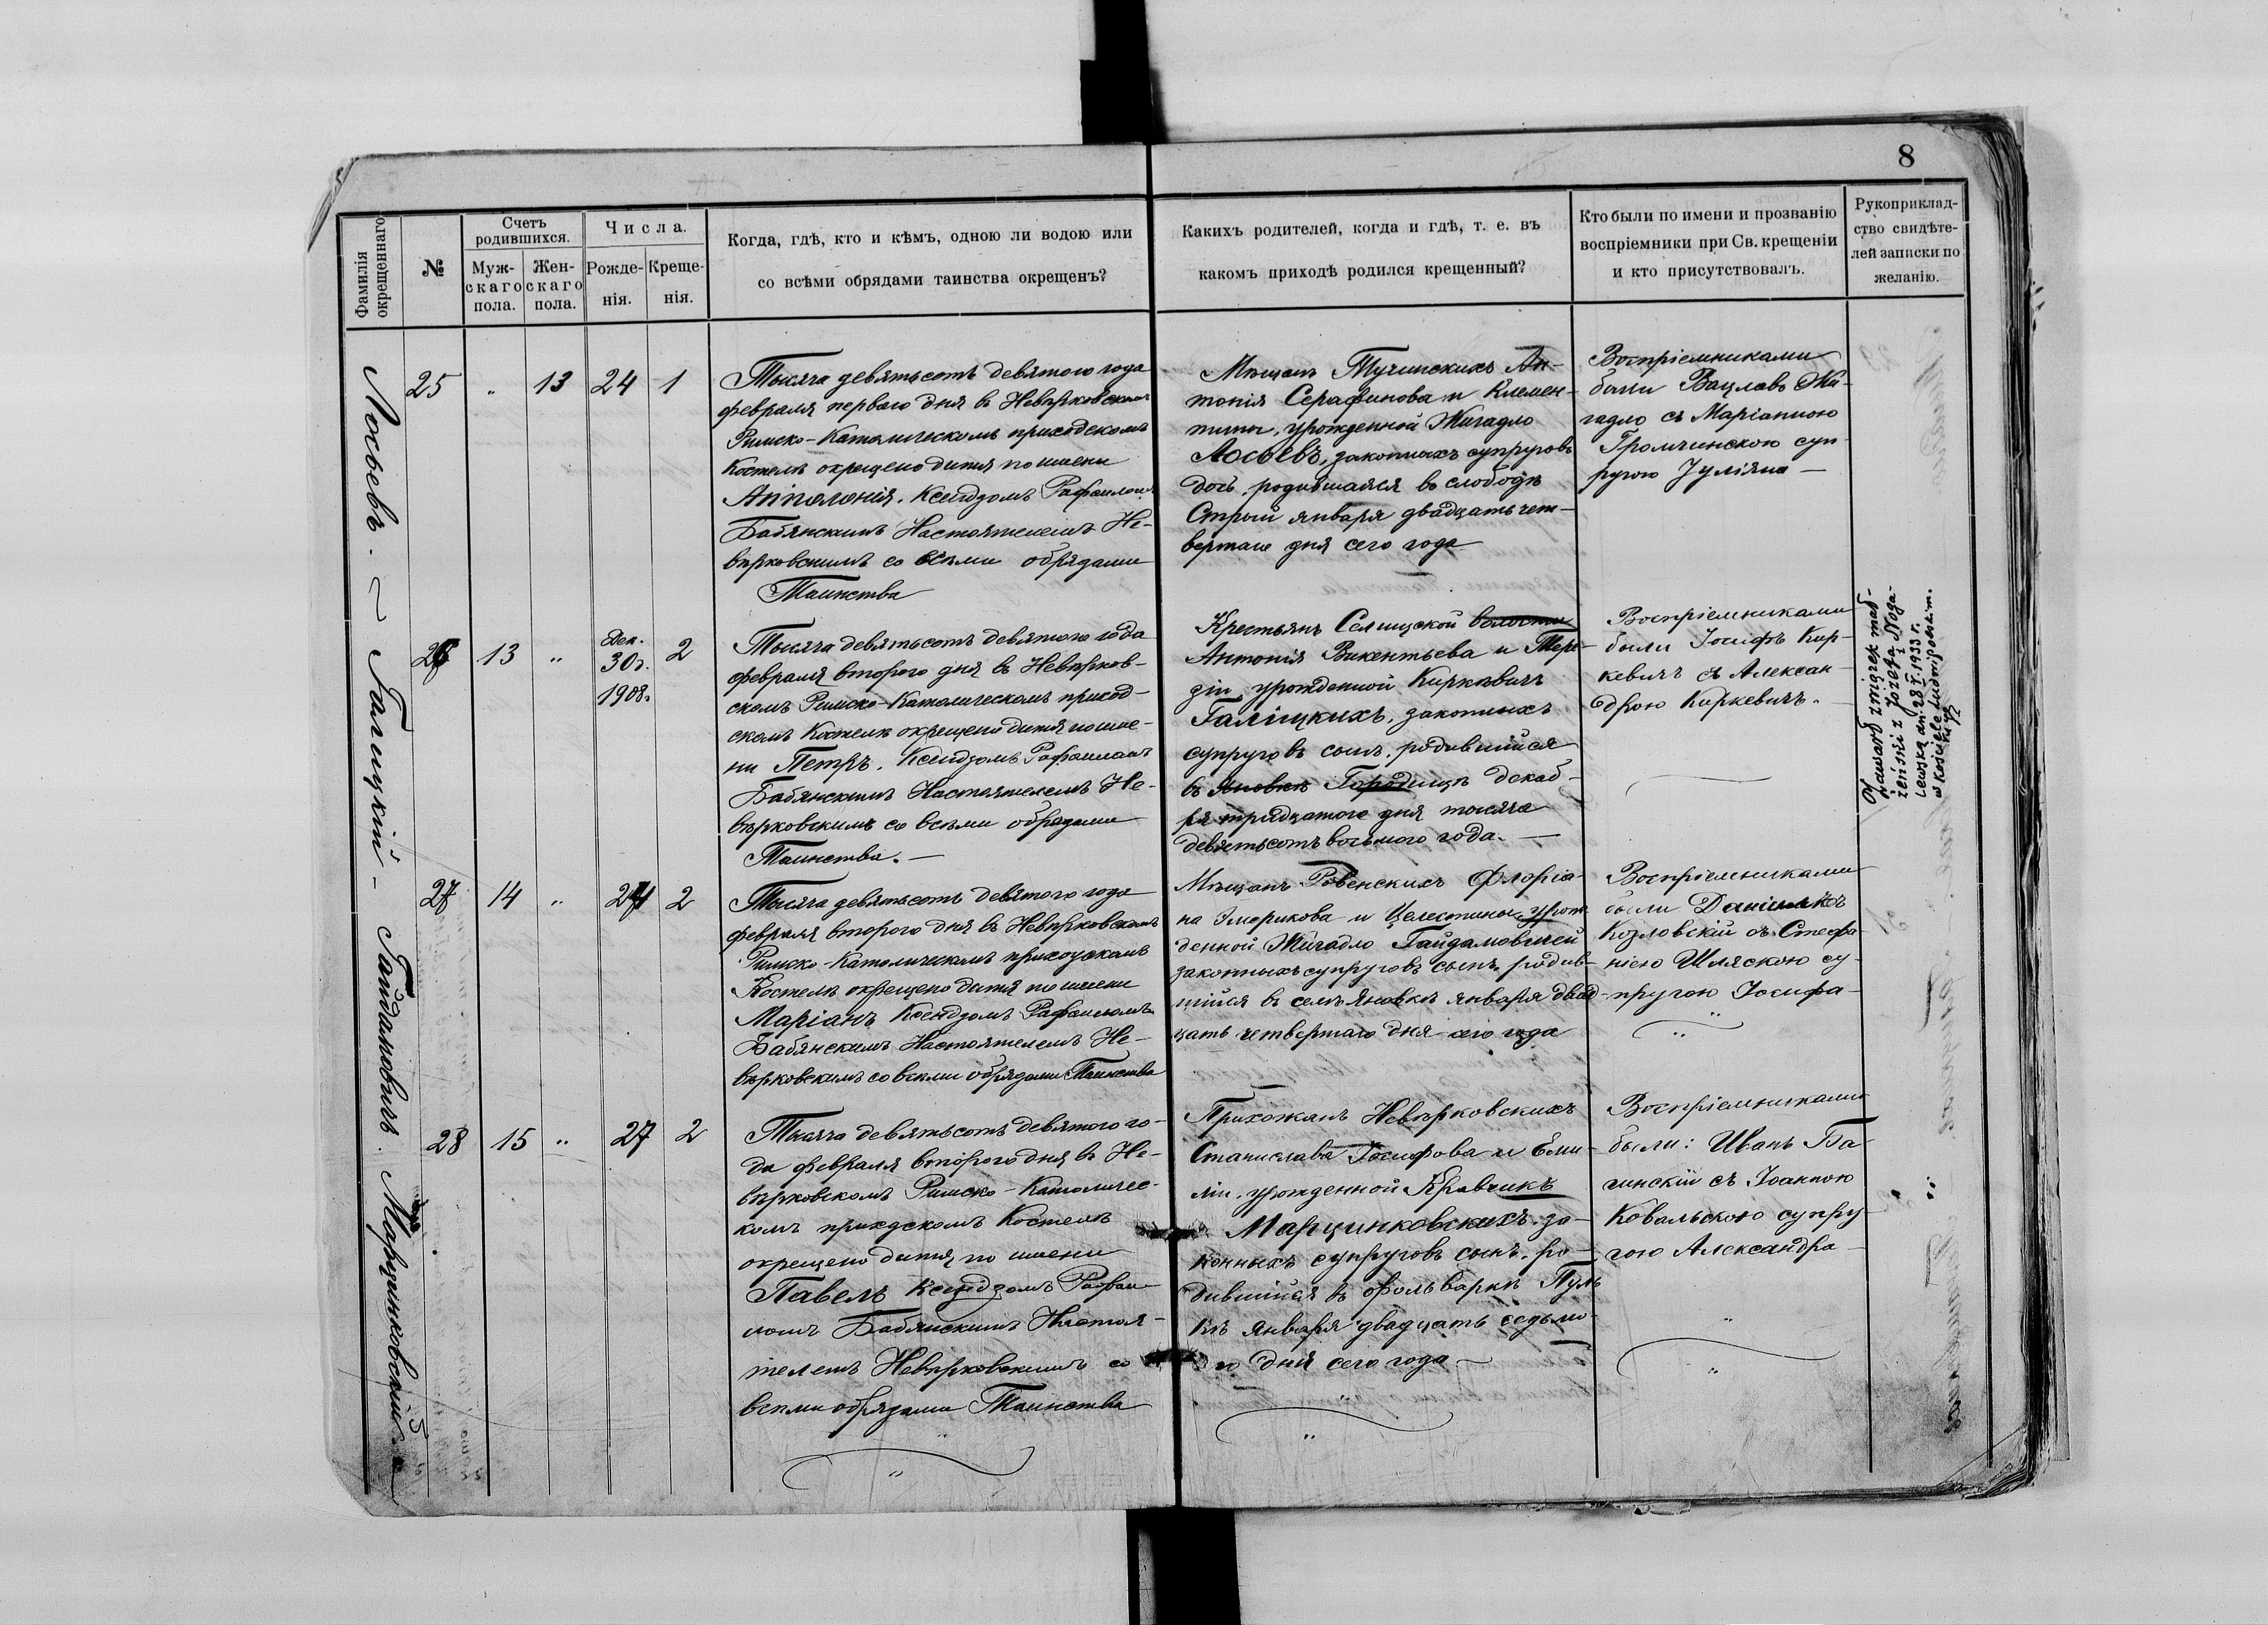 8
Фамилія окрещеннаго
№
Счетъ родившихся.
Муж-скаго пола.
Жен-скаго пола.
Числа.
Рожде-нія.
Креще-нія.
Когда, гдѣ, кто и кѣмъ, одною ли водою или
со всѣми обрядами таинства окрещенъ?
Каихъ родителей, когда и гдѣ, т. е. въ
какомъ приходѣ родился крещенный?
Кто были по имени и прозванію
воспріемники при Св. крещеніи
и кто присутствовалъ.
Рукоприклад-
ство свидѣте-
лей записки по
желанію.
Лосьевъ. — Галицкій — Гайдамовичъ. Марцинковскій.
25 „ 13 24 1
Тысяча девятьсотъ девятого года
февраля перваго дня въ Невѣрковскомъ
Римско-Католическомъ приходскомъ
Костелѣ окрещено дитя по имени
Апполонія. Ксендзомъ Рафаиломъ
Бабянскимъ Настоятелемъ Не-
вѣрковскимъ со всѣми обрядами
Таинства
Мѣщанъ Тучинскихъ Ан-
тонія Серафинова и Клемен-
тины, урожденной Жигадло
Лосьевъ, законныхъ супруговъ
дочь, родившаяся въ слободѣ
Стрый января двадцать чет-
вертаго дня сего года
Воспріемниками
были Вацлавъ Жи-
гадло съ Маріанною
Громчинскою суп-
ругою Juліяна —
26 13 „ Дек. 30г. 1908г. 2
Тысяча девятьсотъ девятого года
февраля второго дня въ Невѣрков-
скомъ Римско-Католическомъ приход-
скомъ Костелѣ окрещено дитя по име-
ни Петръ. Ксендзомъ Рафаиломъ
Бабянскимъ Настоятелемъ Не-
вѣрковскимъ со всѣми обрядами
Таинства. —
Крестьянъ Селищской волости
Антонія Викентьева и Тере-
зіи, урожденной Киркевичъ
Галіцкихъ, законныхъ
супруговъ сынъ, родившійся
въ Яновкѣ Городищѣ декаб-
ря тридцатого дня тысяча
девятьсотъ восьмого года. —
Воспріемниками
были Іосифъ Кир-
кевичъ съ Алексан-
дрою Киркевичъ. —
zawarł związek mał-
żeński z Józefą Noga-
lewską dn. 28 I. 1933 r.
w kościele ludwipolskim.
27 14 „ 24 2
Тысяча девятьсотъ девятого года
февраля второго дня въ Невѣрковскомъ
Римско-Католическомъ приходскомъ
Костелѣ окрещено дитя по имени
Маріанъ Ксендзомъ Рафаиломъ
Бабянскимъ Настоятелемъ Не-
вѣрковскимъ со всѣми обрядами Таинства
Мѣщанъ Ровенскихъ Флоріа-
на Эмерикова и Целестины, урож-
денной Жигадло Гайдамовичей
законныхъ супруговъ сынъ, родив-
шійся въ селѣ Яновкѣ января двад-
цать четвертаго дня сего года
Воспріемниками
были
Козловскій съ Стефа-
ніею Шляскою су-
пругою Іосифа —
28 15 „ 27 2
Тысяча девятьсотъ девятого го-
да февраля второго дня въ Не-
вѣрковскомъ Римско-Католичес-
комъ приходскомъ Костелѣ
окрещено дитя, по имени
Павелъ Ксендзомъ Рафаи-
ломъ Бабянскимъ Настоя-
телемъ Невѣрковскимъ со
всѣми обрядами Таинства
Прихожанъ Невѣрковскихъ
Станислава Іосифова и Еми-
ліи, урожденной Кравчикъ
Марцинковскихъ, за-
конныхъ супруговъ сынъ, ро-
дившійся въ фольваркѣ Пуль
кѣ января двадцать седьмо-
го дня сего года —
Воспріемниками
были: Иванъ Ба-
гинскій съ Іоанною
Ковальскою супру-
гою Александра —